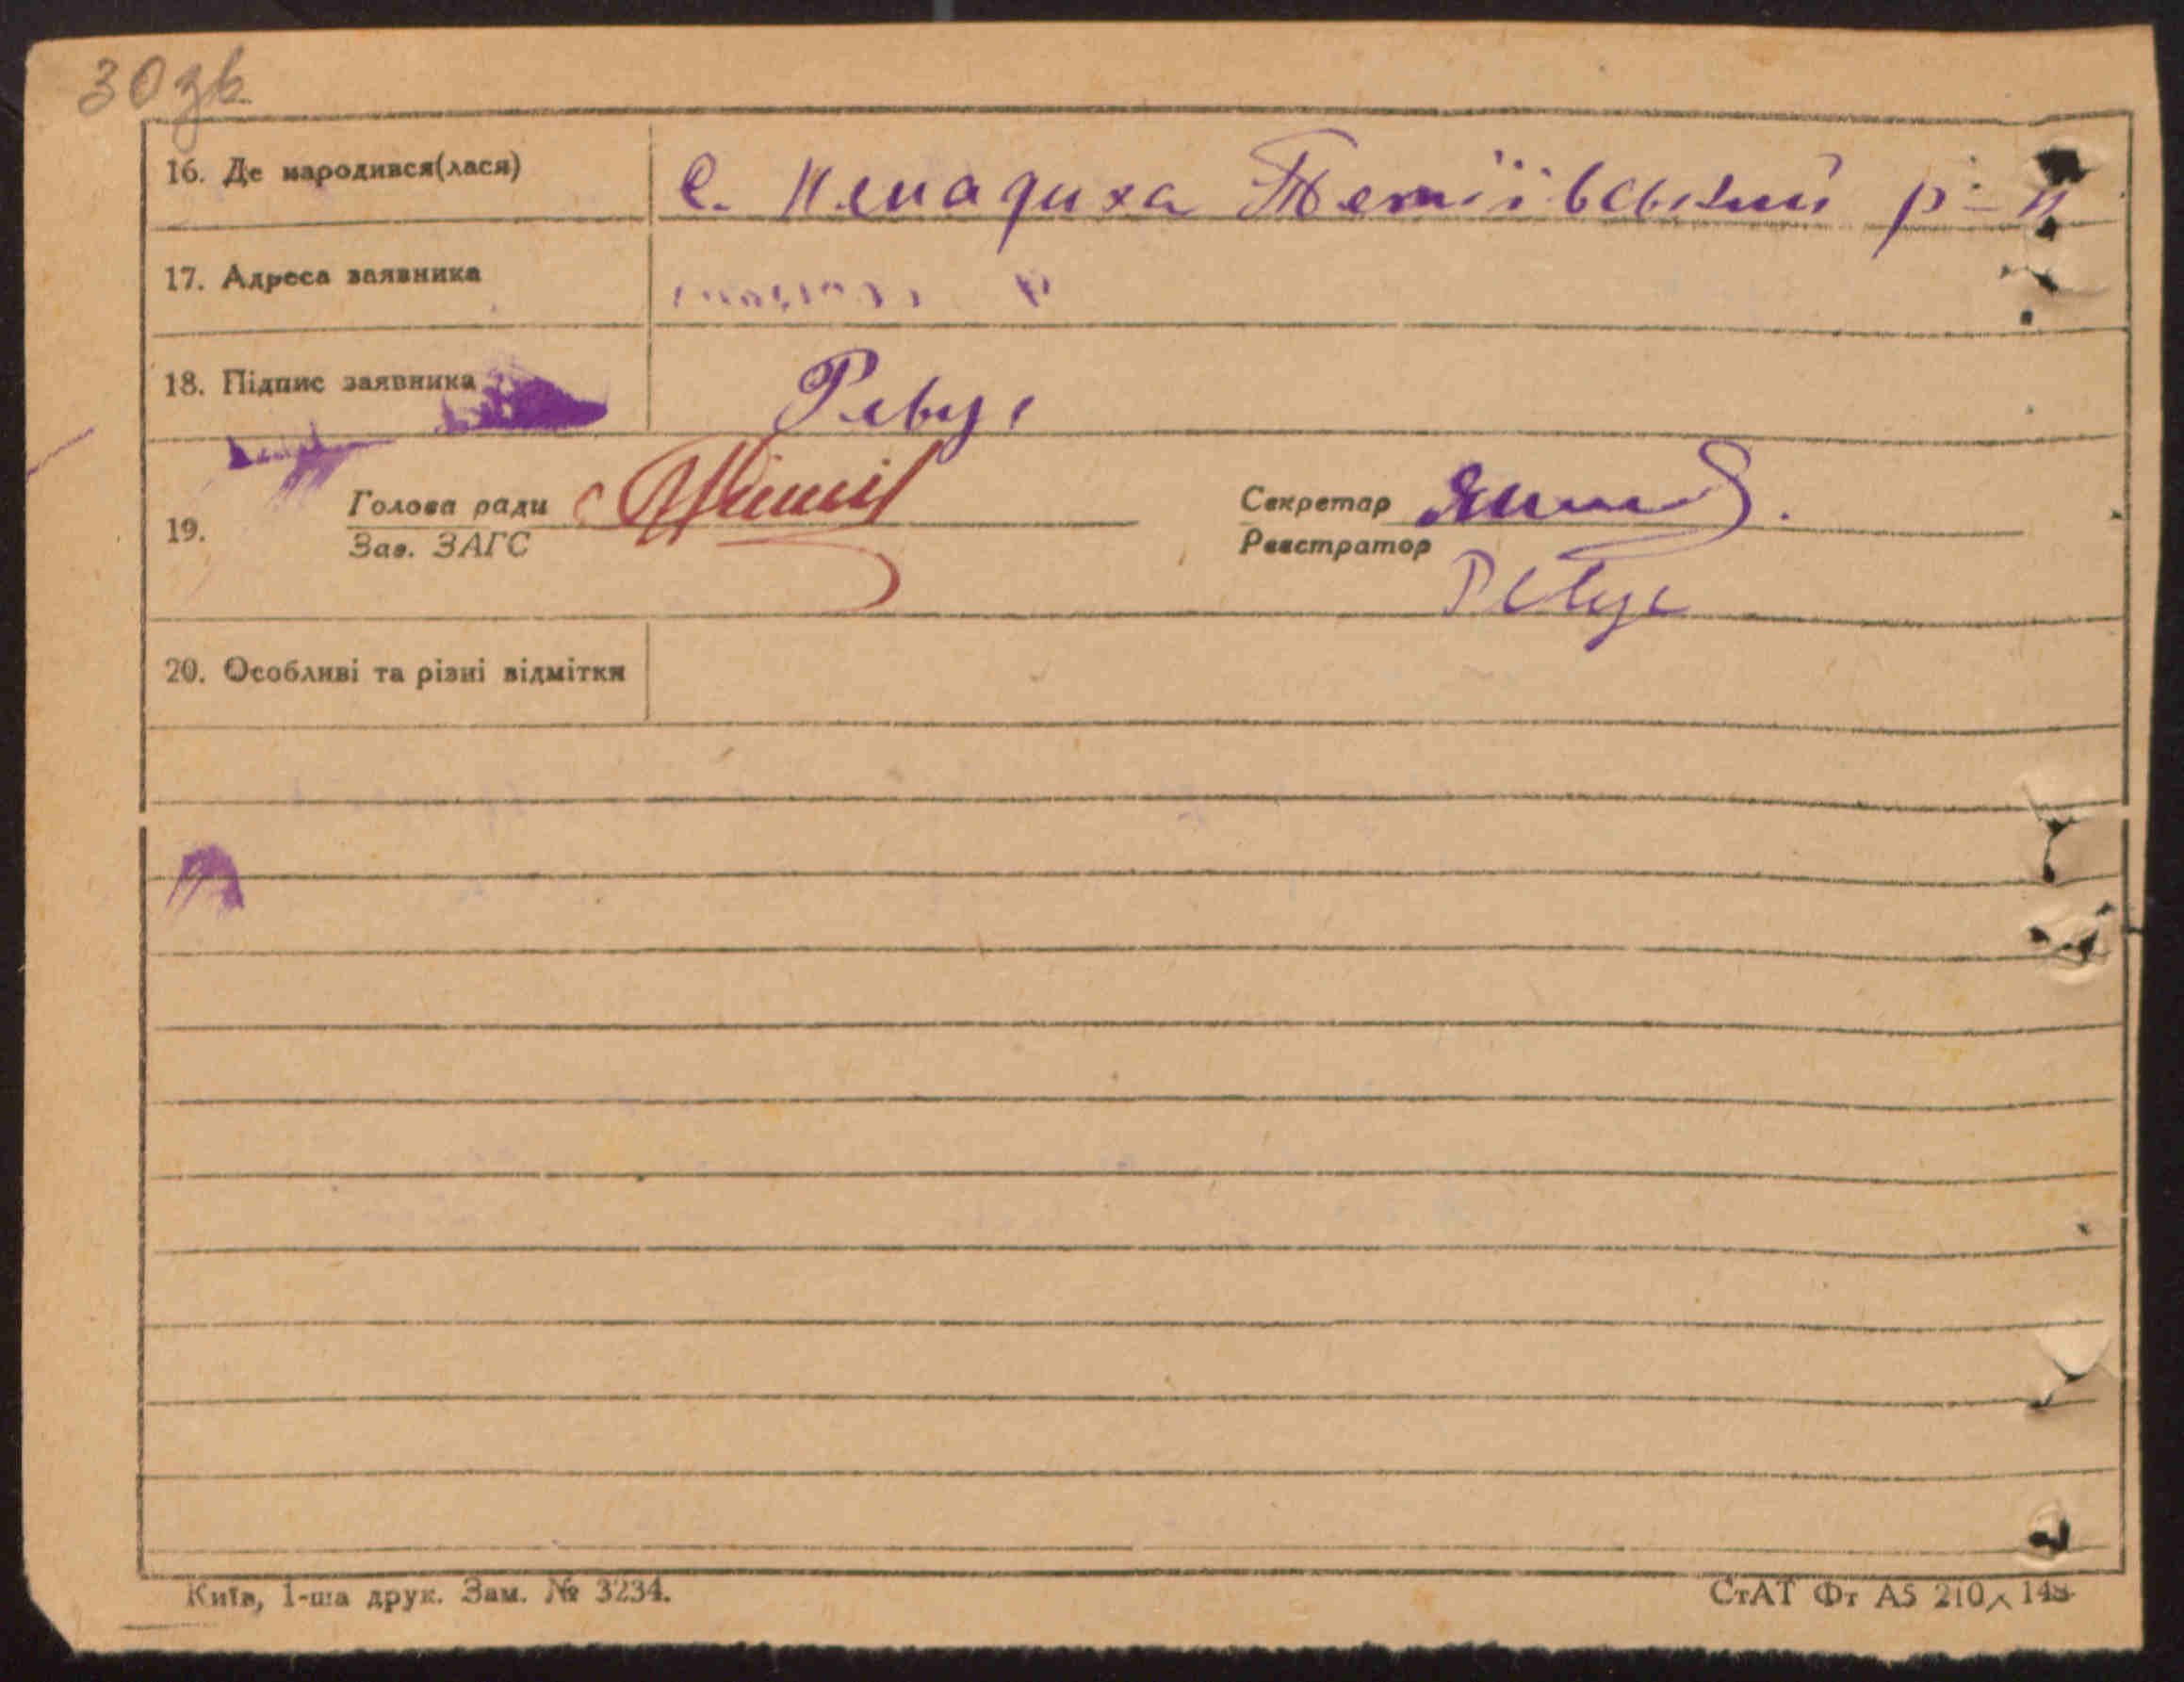 30 зв.
16. Де народився(лася) с. Кенадиха Тетіївський р-н
17. Адреса заявника
18. Підпис заявника Ревус
19. Голова ради Секретар
Зав. ЗАГС Реєстратор
Ревус
20. Особливі та різні відмітки
Київ, 1-ша друк. Зам. № 3234. СтАТ Фт А5 210×148